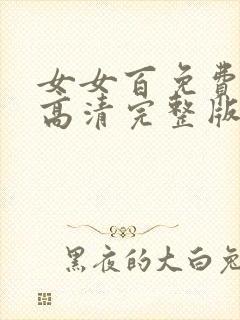 女女百免費
高清完整版
黑夜的大白兔